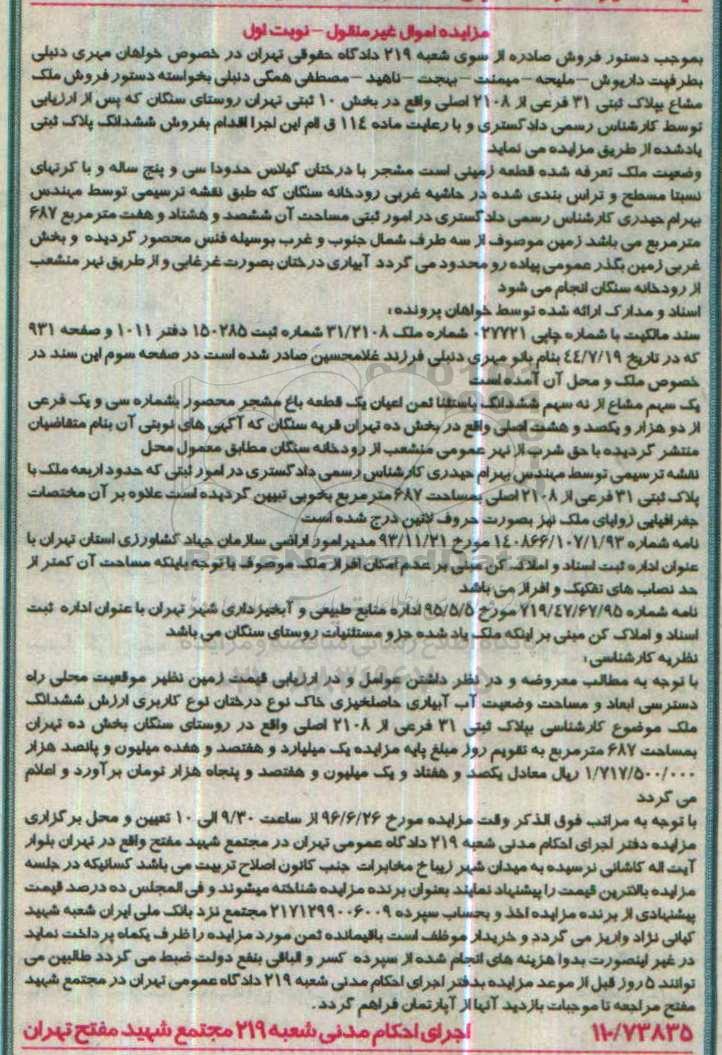 مزایده اموال غیرمنقول – نوبت اول
بموجب دستور فروش صادره از سوی شعبه ۲۱۹ دادگاه حقوقی تهران در خصوص خواهان مهری دنبلی
بطرفیت داریوش – ملیحه – میمنت – بهجت – ناهید – مصطفی همگی دنبلی بخواسته دستور فروش ملک
مشاع بپلاک ثبتی ۳۱ فرعی از ۲۱۰۸ اصلی واقع در بخش ۱۰ ثبتی تهران روستای سنگان که پس از ارزیابی
توسط کارشناس رسمی دادگستری و با رعایت ماده ۱۱۴ ق ام این اجرا اقدام بفروش ششدانگ پلاک ثبتی
یادشده از طریق مزایده می نماید
وضعیت ملک تعرفه شده قطعه زمینی است مشجر با درختان گیلاس حدودا سی و پنج ساله و با کرتهای
نسبتا مسطح و تراس بندی شده در حاشیه غربی رودخانه سنگان که طبق نقشه ترسیمی توسط مهندس
بهرام حیدری کارشناس رسمی دادگستری در امور ثبتی مساحت آن ششصد و هشتاد و هفت مترمربع ۶۸۷
مترمربع می باشد زمین موصوف از سه طرف شمال جنوب و غرب بوسیله فنس محصور گردیده و بخش
غربی زمین بگذر عمومی پیاده رو محدود می گردد آبیاری درختان بصورت غرقابی و از طریق نهر منشعب
از رودخانه سنگان انجام می شود
اسناد و مدارک ارائه شده توسط خواهان پرونده :
سند مالکیت با شماره چاپی ۰۲۷۷۲۱ شماره ملک ۳۱/۲۱۰۸ شماره ثبت ۱۵۰۲۸۵ دفتر ۱۰۱۱ و صفحه ۹۳۱
که در تاریخ ۴۴/۷/۱۹ بنام بانو مهری دنبلی فرزند غلامحسین صادر شده است در صفحه سوم این سند در
خصوص ملک و محل آن آمده است
یک سهم مشاع از نه سهم ششدانگ باستثنا ثمن اعیان یک قطعه باغ مشجر محصور بشماره سی و یک فرعی
از دو هزار و یکصد و هشت اصلی واقع در بخش ده تهران قریه سنگان که آگهی های نوبتی آن بنام متقاضیان
منتشر گردیده با حق شرب از نهر عمومی منشعب از رودخانه سنگان مطابق معمول محل
نقشه ترسیمی توسط مهندس بهرام حیدری کارشناس رسمی دادگستری در امور ثبتی که حدود اربعه ملک با
پلاک ثبتی ۳۱ فرعی از ۲۱۰۸ اصلی بمساحت ۶۸۷ مترمربع بخوبی تبیین گردیده است علاوه بر آن مختصات
جغرافیایی زوایای ملک نیز بصورت حروف لاتین درج شده است
نامه شماره ۱۴۰۸۶۶/۱۰۷/۱/۹۳ مورخ ۹۳/۱۱/۲۱ مدیر امور اراضی سازمان جهاد کشاورزی استان تهران با
عنوان اداره ثبت اسناد و املاک کن مبنی بر عدم امکان افراز ملک موصوف با توجه باینکه مساحت آن کمتر از
حد نصاب های تفکیک و افراز می باشد
نامه شماره ۷۱۹/۴۷/۶۷/۹۵ مورخ ۹۵/۵/۵ اداره منابع طبیعی و آبخیزداری شهر تهران با عنوان اداره ثبت
اسناد و املاک کن مبنی بر اینکه ملک یاد شده جزو مستثنیات روستای سنگان می باشد
نظریه کارشناسی :
با توجه به مطالب معروضه و در نظر داشتن عوامل و در ارزیابی قیمت زمین نظیر موقعیت محلی راه
دسترسی ابعاد و مساحت وضعیت آب آبیاری حاصلخیزی خاک نوع درختان نوع کاربری ارزش ششدانگ
ملک موضوع کارشناسی بپلاک ثبتی ۳۱ فرعی از ۲۱۰۸ اصلی واقع در روستای سنگان بخش ده تهران
بمساحت ۶۸۷ مترمربع به تقویم روز مبلغ پایه مزایده یک میلیارد و هفتصد و هفده میلیون و پانصد هزار
۱/۷۱۷/۵۰۰/۰۰۰ ریال معادل یکصد و هفتاد و یک میلیون و هفتصد و پنجاه هزار تومان برآورد و اعلام
می گردد
با توجه به مراتب فوق الذکر وقت مزایده مورخ ۹۶/۶/۲۶ از ساعت ۹/۳۰ الی ۱۰ تعیین و محل برگزاری
مزایده دفتر اجرای احکام مدنی شعبه ۲۱۹ دادگاه عمومی تهران در مجتمع شهید مفتح واقع در تهران بلوار
آیت اله کاشانی نرسیده به میدان شهر زیبا خ مخابرات جنب کانون اصلاح تربیت می باشد کسانیکه در جلسه
مزایده بالاترین قیمت را پیشنهاد نمایند بعنوان برنده مزایده شناخته میشوند و فی المجلس ده درصد قیمت
پیشنهادی از برنده مزایده اخذ و بحساب سپرده ۲۱۷۱۲۹۹۰۰۶۰۰۹ مجتمع نزد بانک ملی ایران شعبه شهید
کیانی نژاد واریز می گردد و خریدار موظف است باقیمانده ثمن مورد مزایده را ظرف یکماه پرداخت نماید
در غیر اینصورت بدوا هزینه های انجام شده از سپرده کسر و الباقی بنفع دولت ضبط می گردد طالبین می
توانند ۵ روز قبل از موعد مزایده بدفتر اجرای احکام مدنی شعبه ۲۱۹ دادگاه عمومی تهران در مجتمع شهید
مفتح مراجعه تا موجبات بازدید آنها از آپارتمان فراهم گردد .
۱۱۰/۷۳۸۳۵ اجرای احکام مدنی شعبه ۲۱۹ مجتمع شهید مفتح تهران